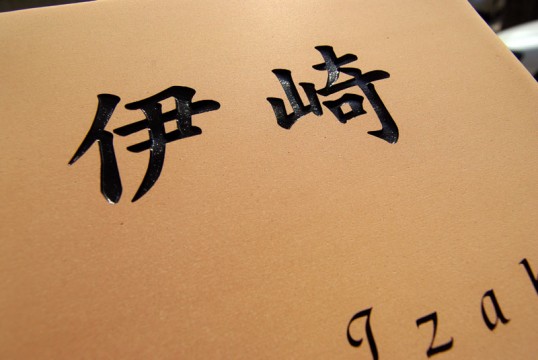 伊崎
Iza